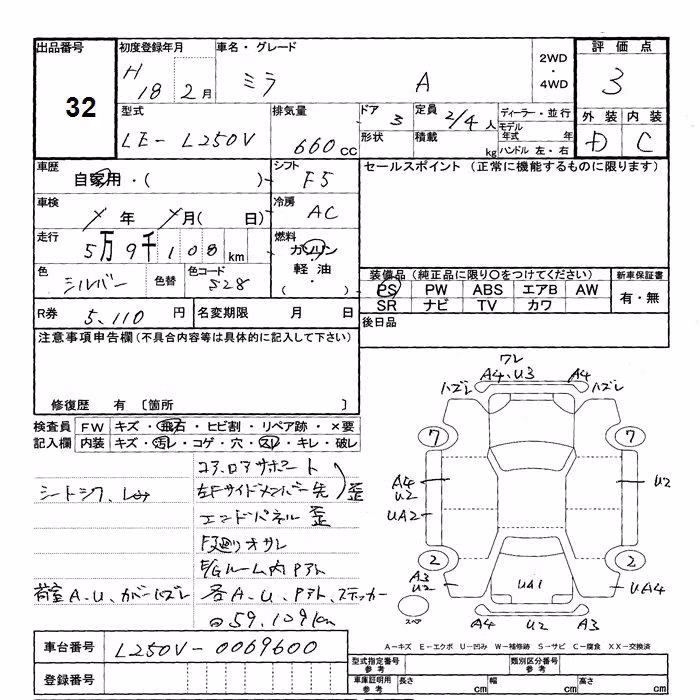 出品番号 初度登録年月 車名・グレード 2WD・4WD 評価点
32 H18 2月 ミラ A 3
型式 排気量 ドア 3 定員 2/4人 ディーラー・並行 外装 内装
LE-L250V 660cc 形状 積載 kg モデル年式 年 ハンドル 左・右 D C
車歴 自家用・( ) シフト F5 セールスポイント(正常に機能するものに限ります)
車検 年 月( 日) 冷房 AC
走行 5万9千108km 燃料 ガソリン
色 シルバー 色替 色コード S28 軽油 ( ・ ) 装備品(純正品に限り○をつけてください) 新車保証書
PS PW ABS エアB AW 有・無
SR ナビ TV カワ
R券 5,110円 名変期限 月 日 後日品
注意事項申告欄(不具合内容等は具体的に記入して下さい)
修復歴 有 〔箇所 〕
検査員 FW キズ・飛石・ヒビ割・リペア跡・×要
記入欄 内装 キズ・汚レ・コゲ・穴・スレ・キレ・破レ
コア、ロアサポート
シートシワ、しみ 左Fサイドメンバー先 歪
エンドパネル 歪
F廻りオサレ
E/Gルーム内 Pアト
荷室A.U、カバーハズレ 各A.U、Pアト、ステッカー
59,109km
ワレ
A4.U3 A4
ハズレ ハズレ
7 7
A4 U2 U2
UA2
2 2
A3 U2 UA1 UA4
スペア A4 U2 A3
A-キズ E-エクボ U-凹み W-補修跡 S-サビ C-腐食 XX-交換済
車台番号 L250V-0069600
型式指定番号 参考 類別区分番号 参考
登録番号 車庫証明用 参考 長さ cm 幅 cm 高さ cm